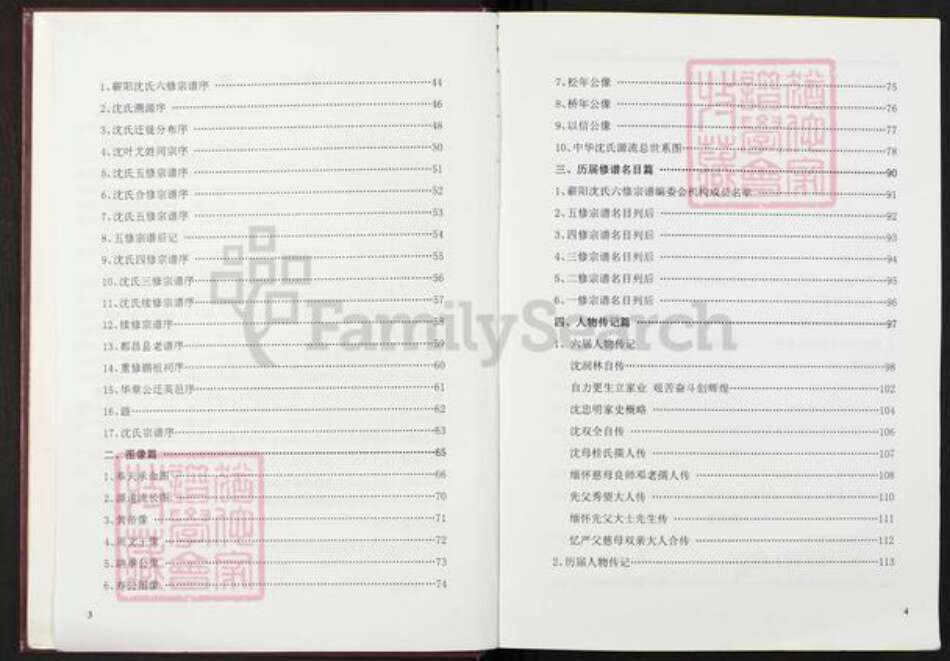 1、蕲阳沈氏六修宗谱序 ……44
2、沈氏溯源序 ……46
3、沈氏迁徙分布序 ……48
4、沈叶尤姓同宗序 ……50
5、沈氏五修宗谱序 ……51
6、沈氏合修宗谱序 ……52
7、沈氏五修宗谱序 ……53
8、五修宗谱后记 ……54
9、沈氏四修宗谱序 ……55
10、沈氏三修宗谱序 ……56
11、沈氏续修宗谱序 ……57
12、续修宗谱序 ……58
13、都昌县老谱序 ……59
14、重修鹏祖祠序 ……60
15、华章公迁英邑序 ……61
16、跋 ……62
17、沈氏宗谱序 ……63
二、图像篇 ……65
1、奉天承命图 ……66
2、源远流长图 ……70
3、黄帝像 ……71
4、周文王像 ……72
5、聃季公像 ……73
6、寿公图像 ……74
3
7、松年公像 ……75
8、桥年公像 ……76
9、以信公像 ……77
10、中华沈氏源流总世系图 ……78
三、历届修谱名目篇 ……90
1、蕲阳沈氏六修宗谱编委会机构成员名单 ……91
2、五修宗谱名目列后 ……92
3、四修宗谱名目列后 ……93
4、三修宗谱名目列后 ……94
5、二修宗谱名目列后 ……95
6、一修宗谱名目列后 ……96
四、人物传记篇 ……97
1、六届人物传记
沈润林自传 ……98
自力更生立家业 艰苦奋斗创辉煌 ……102
沈忠明家史概略 ……104
沈双全自传 ……106
沈母桂氏孺人传 ……107
缅怀慈母良师邓老孺人传 ……108
先父秀望大人传 ……110
缅怀先父大士先生传 ……111
忆严父慈母双亲大人合传 ……112
2、历届人物传记 ……113
4
FamilySearch